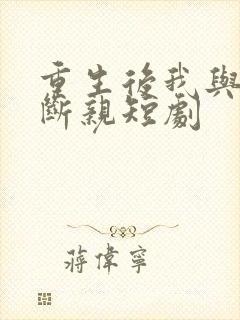 重生後我與
斷親短劇
蔣偉寧